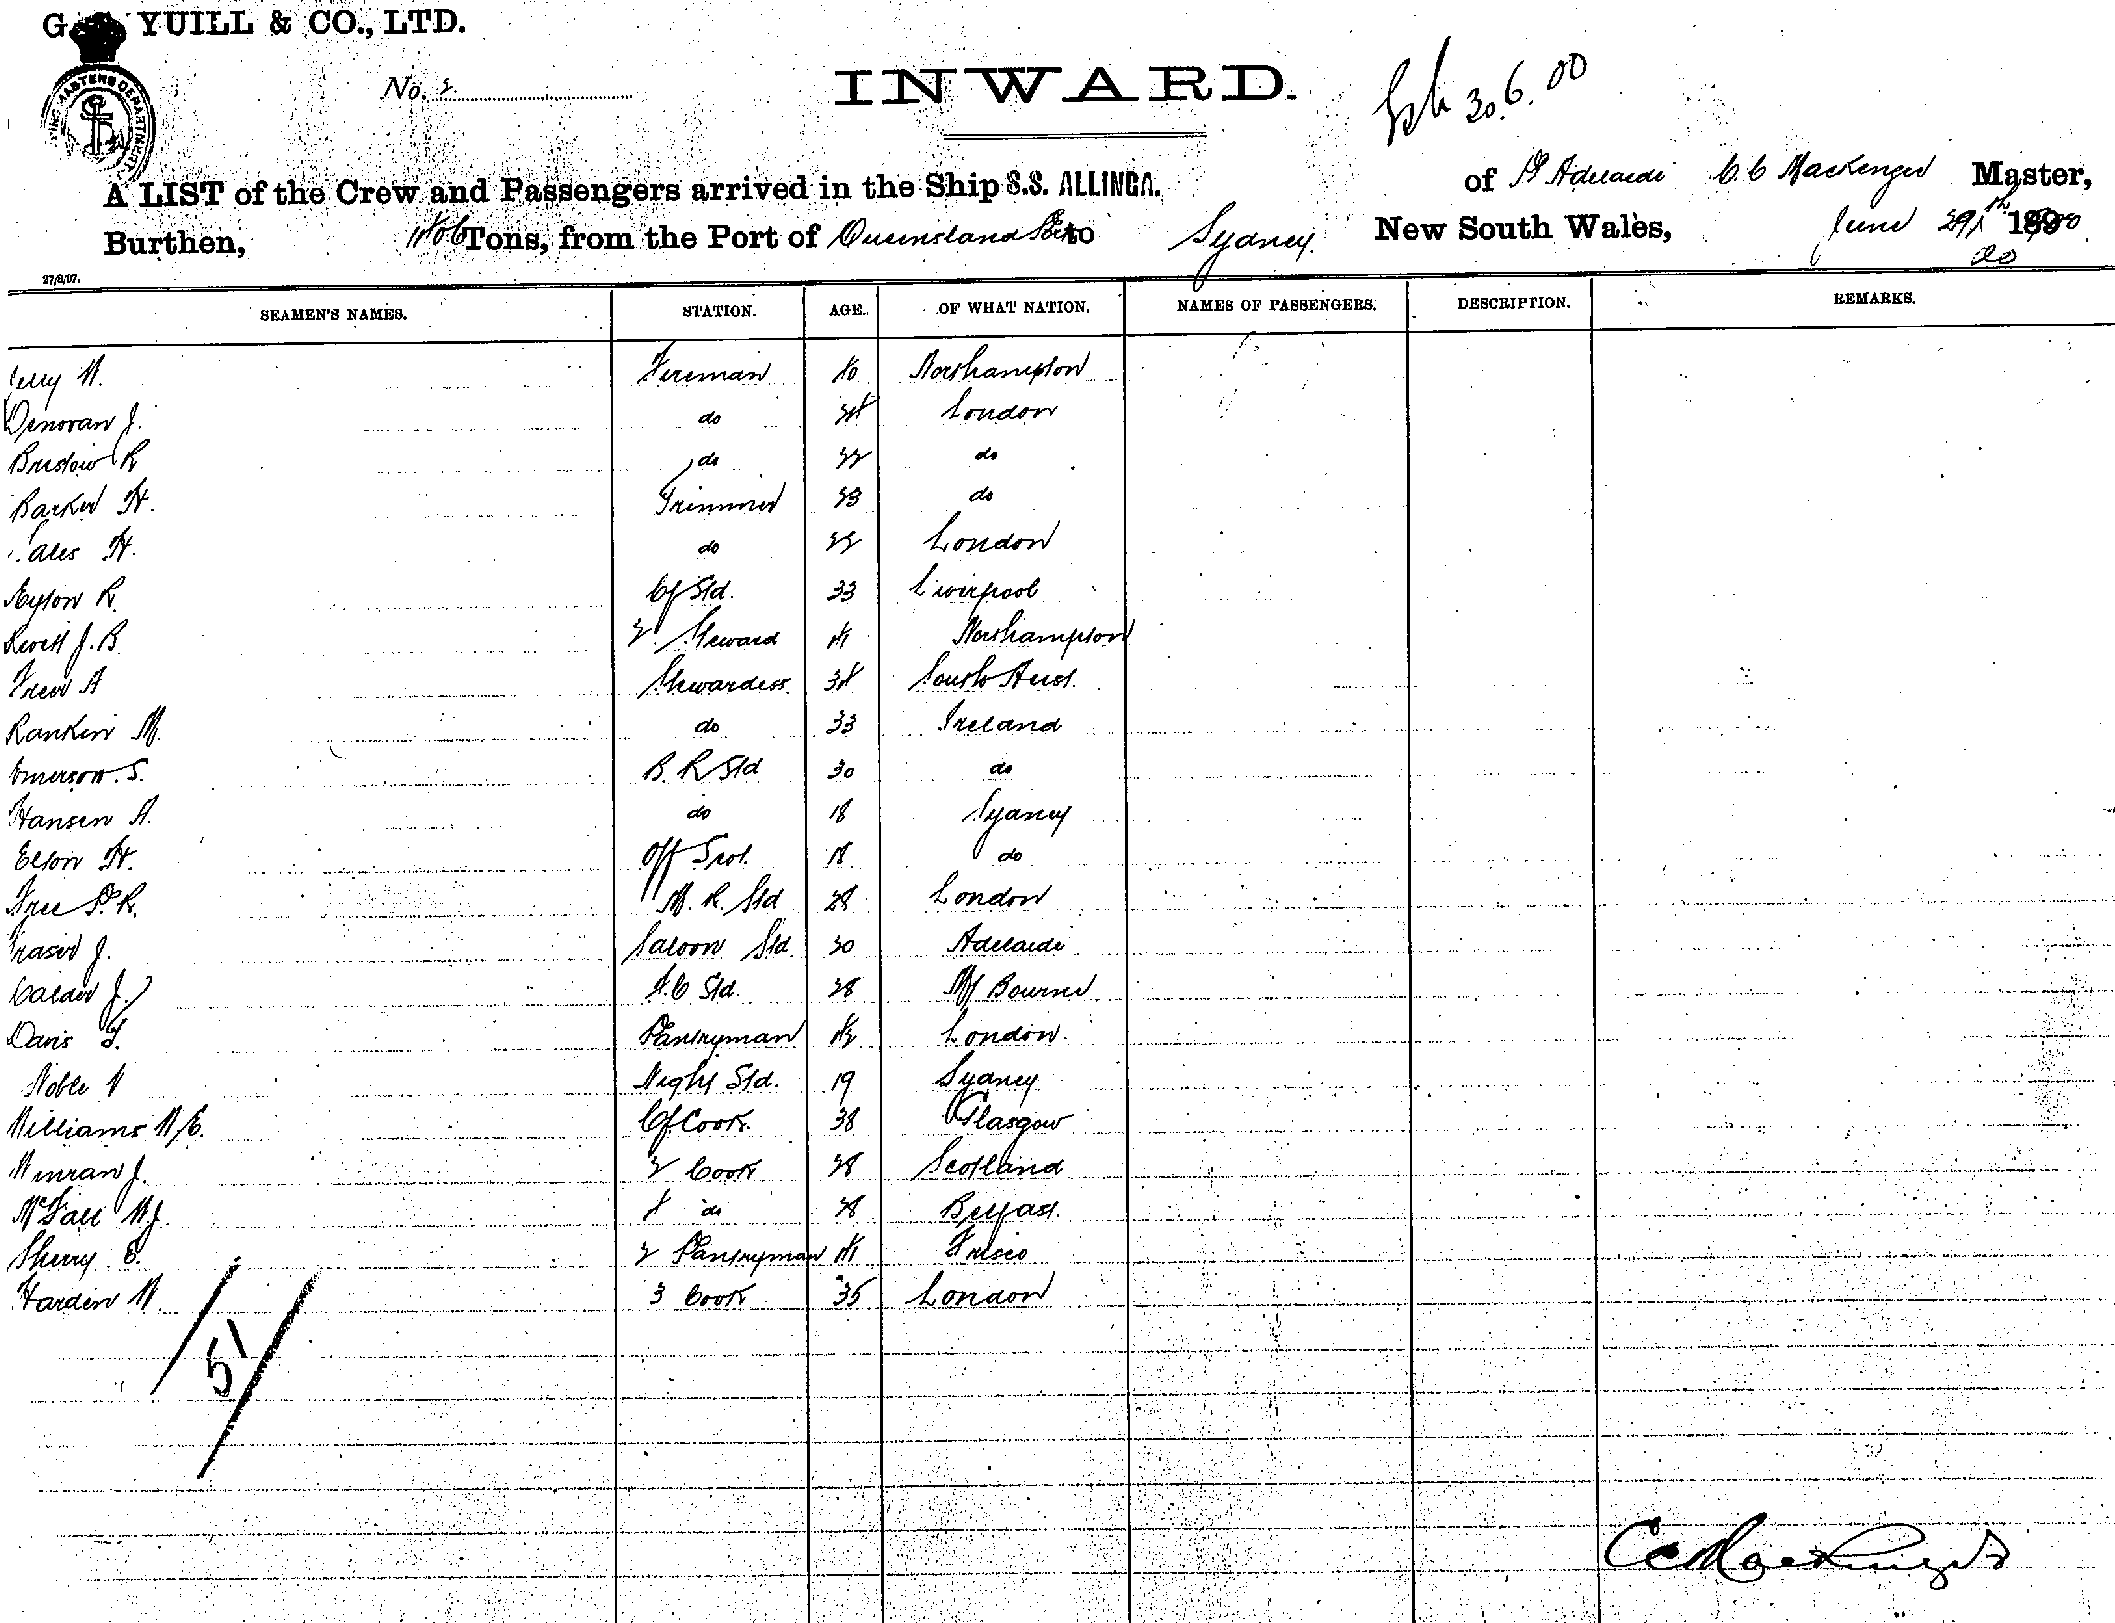 G. S. YUILL & CO., LTD.
No. 2
INWARD.
30.6.00
SHIPPING MASTERS DEPARTMENT
A LIST of the Crew and Passengers arrived in the Ship S.S. ALLINGA. of Pt Adelaide C. C Mackenzie Master,
Burthen, Tons, from the Port of Queensland to Sydney. New South Wales, June 29th 1900
27/8/97.
SEAMEN'S NAMES. STATION. AGE. OF WHAT NATION. NAMES OF PASSENGERS. DESCRIPTION. REMARKS.
W. Fireman 40 Northampton
Donovan J. do 24 London
Bristow R do 22 do
Barker H. Trimmer 23 do
H. do 22 London
R. Cf Std. 33 Liverpool
J. B 2 Steward 41 Northampton
Frew A Stewardess 34 South Aust.
Rankin M. do 33 Ireland
Emerson. S. B. R Std 30 do
Hansen A. do 18 Sydney
Elton H. Off 18 do
Free P. R. M. R. Std 28 London
Fraser J. Saloon Std 30 Adelaide
Calder J. F. C Std. 28 M Bourne
Davis T. Pantryman 42 London.
Noble Night Std. 19 Sydney
Williams W. E. Cf Cook. 38 Glasgow
J. 2 Cook 28 Scotland
McFall W. J. 4 do 28 Belfast.
Sherry E. 2 Pantryman 41 Frisco
Harden W. 3 Cook 35 London
51
CC Mackenzie